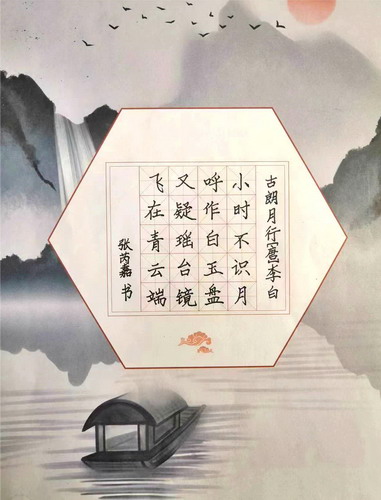 古朗月行[唐]李白
小时不识月
呼作白玉盘
又疑瑶台镜
飞在青云端
张芮嘉书